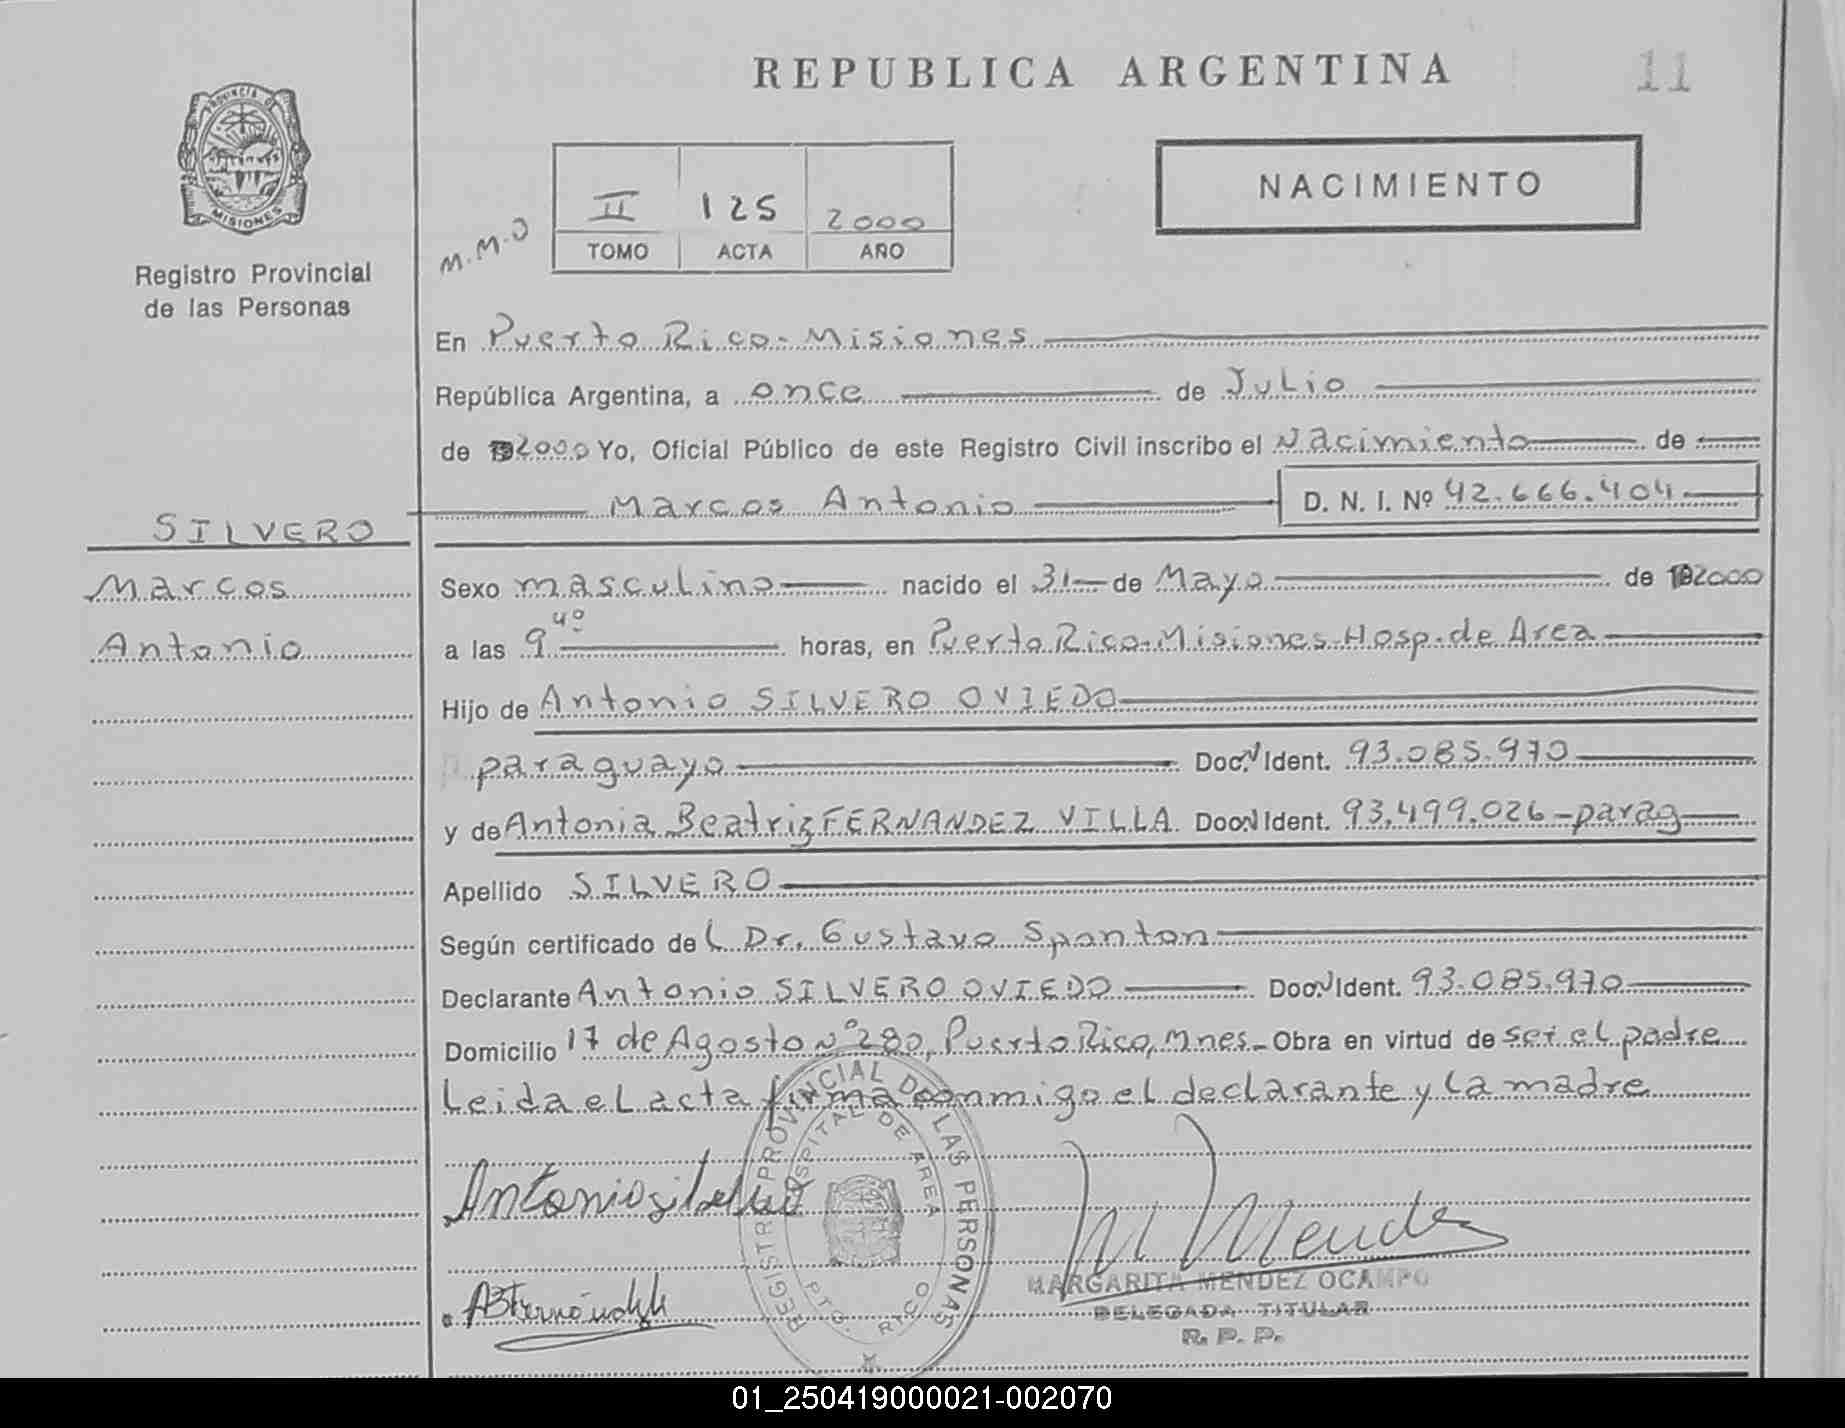 REPUBLICA ARGENTINA
11
PROVINCIA DE
MISIONES
Registro Provincial
de las Personas
M.M.O
II 125 2000
TOMO ACTA AÑO
NACIMIENTO
En Puerto Rico - Misiones
República Argentina, a once de Julio
de 2000 Yo, Oficial Público de este Registro Civil inscribo el Nacimiento de
Marcos Antonio D. N. I. Nº 42.666.404
SILVERO
Marcos
Antonio
Sexo masculino nacido el 31 de Mayo de 2000
a las 9 40 horas, en Puerto Rico-Misiones-Hosp. de Area
Hijo de Antonio SILVERO OVIEDO
paraguayo Doc. N Ident. 93.085.970
y de Antonia Beatriz FERNANDEZ VILLA Doc. N Ident. 93.499.026 - parag
Apellido SILVERO
Según certificado del Dr. Gustavo Spanton
Declarante Antonio SILVERO OVIEDO Doc. N Ident. 93.085.970
Domicilio 17 de Agosto Nº 280, Puerto Rico, Mnes. Obra en virtud de ser el padre
Leida el acta firma conmigo el declarante y la madre
REGISTRO PROVINCIAL DE LAS PERSONAS
HOSPITAL DE AREA
PTO. RICO
M Mendez
MARGARITA MENDEZ OCAMPO
DELEGADA TITULAR
R. P. P.
01_250419000021-002070